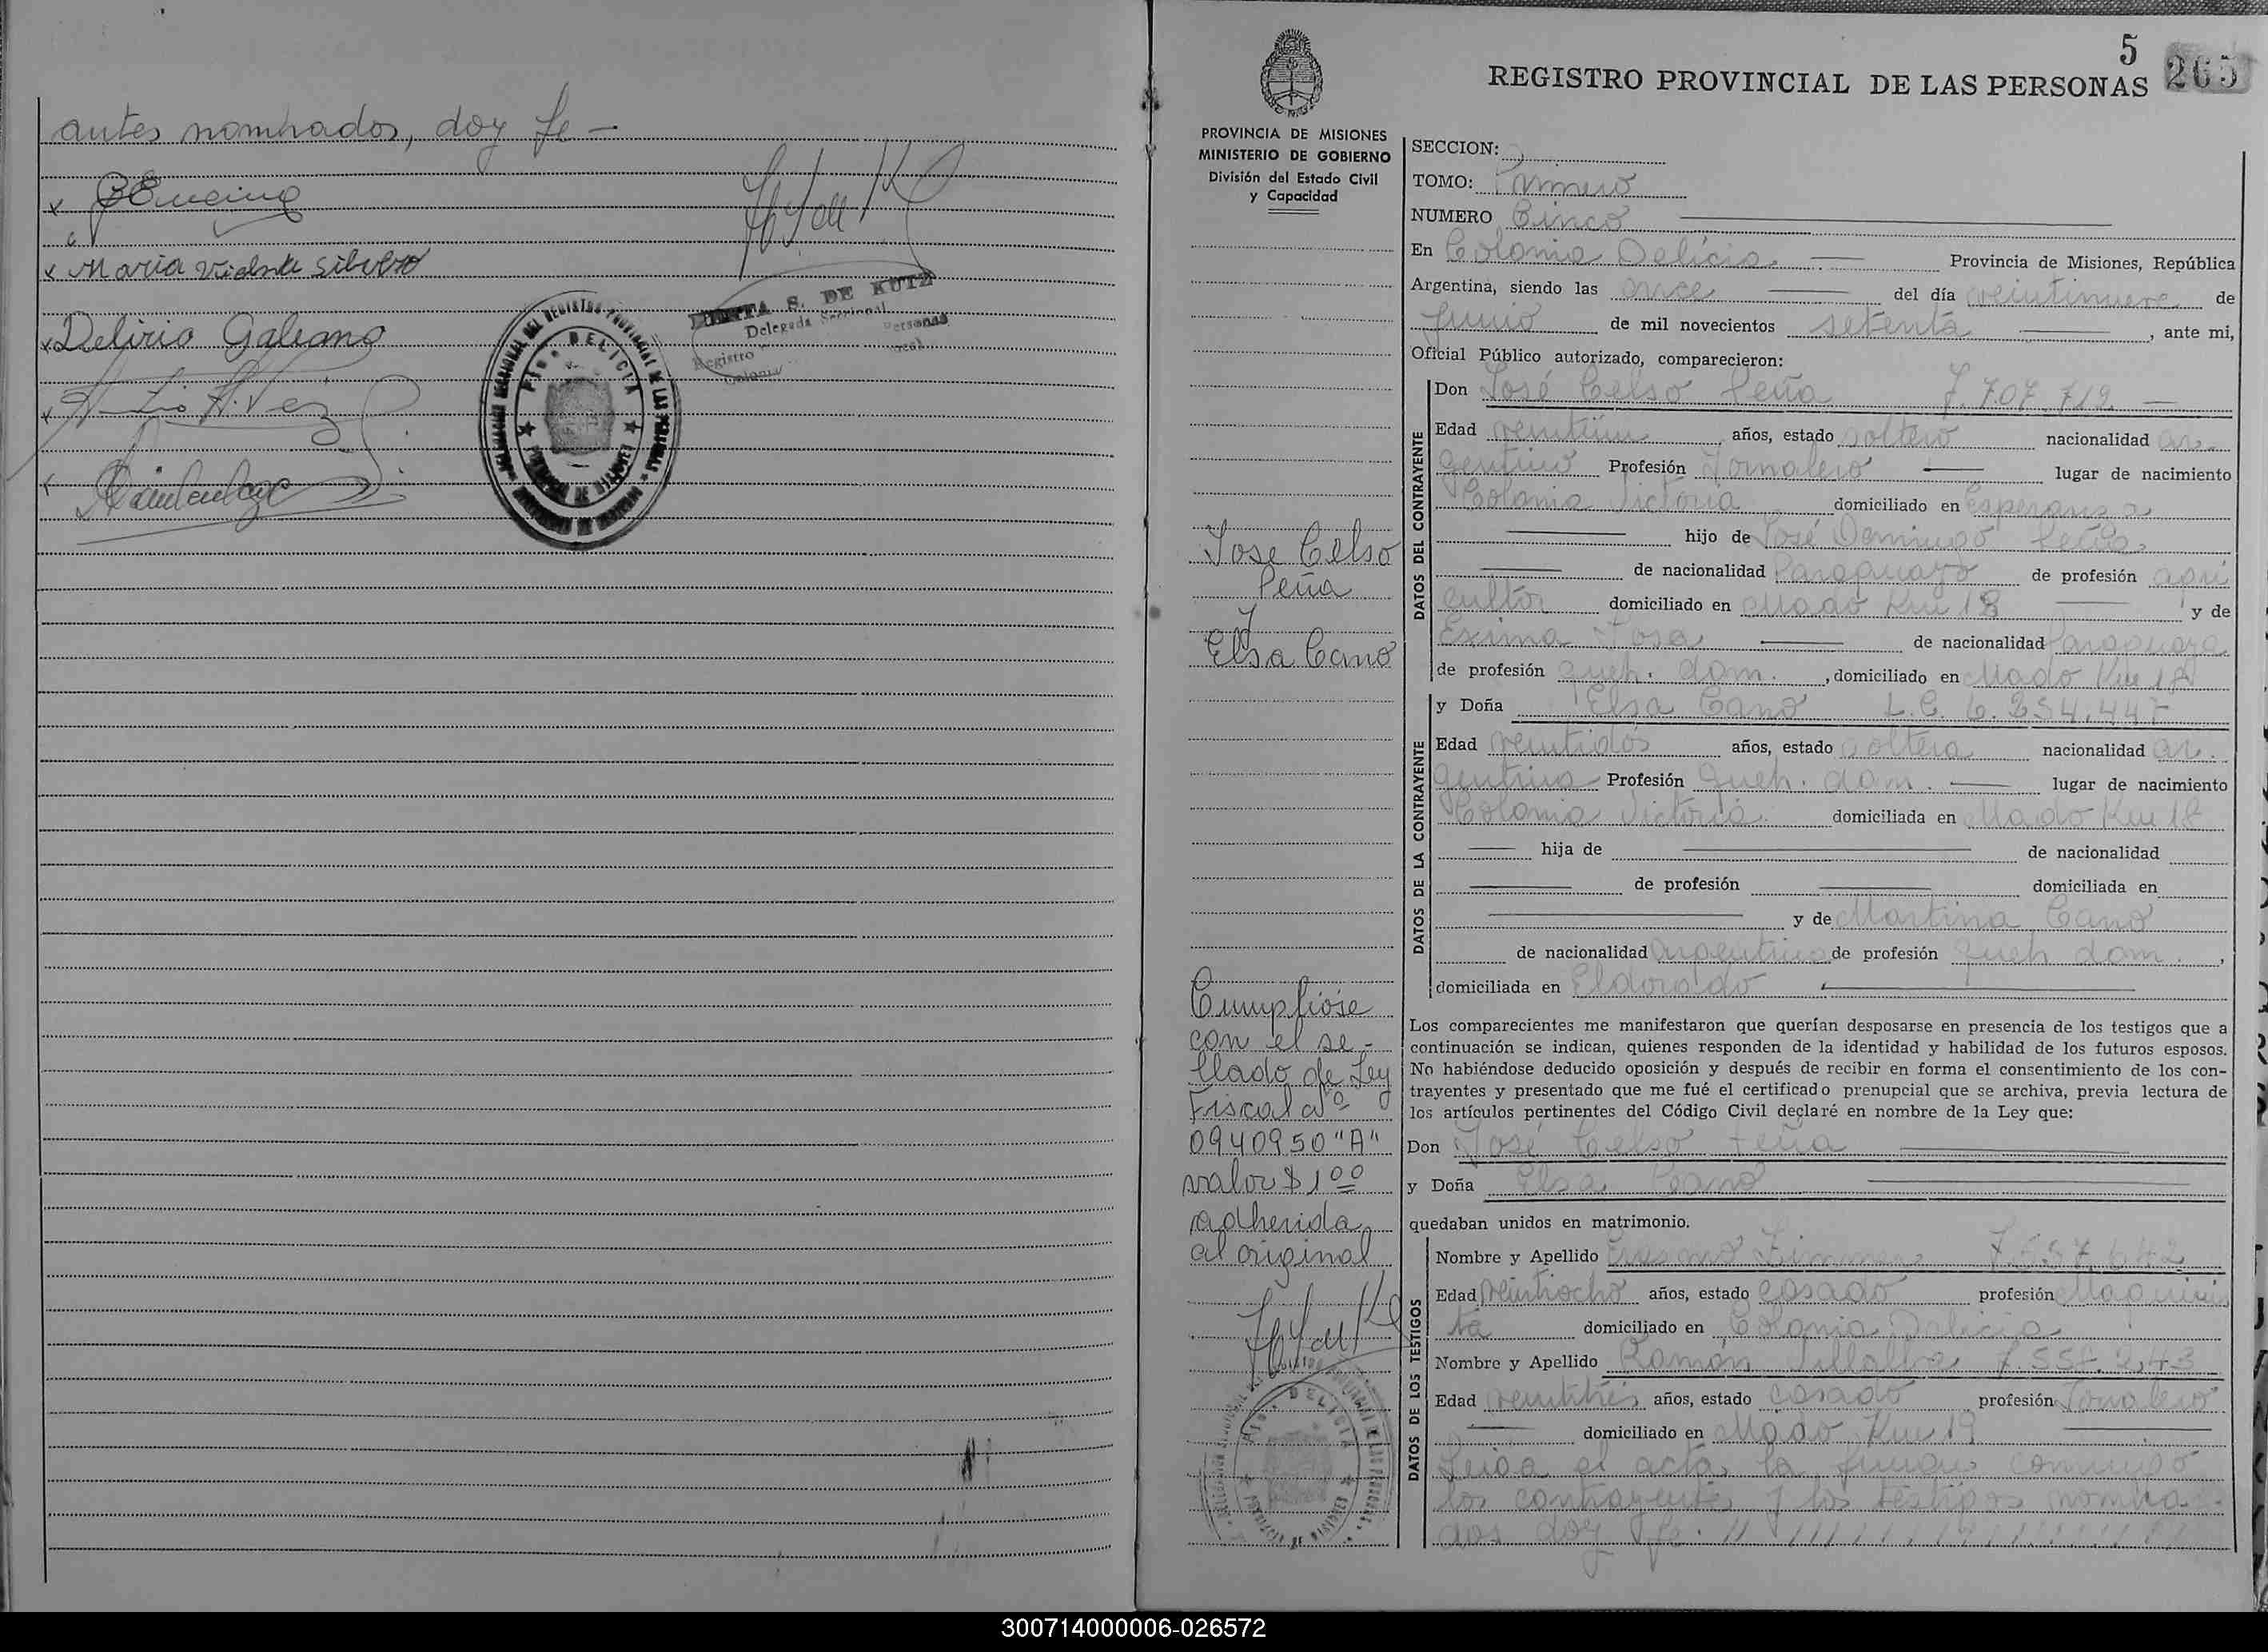 antes nombrados, doy fe -
x
x Maria Vicenta Silvero
x Delirio Galeano
x
x
DE KUTZ
Delegada Seccional
Registro Personas
Colonia
DELICIA
5
265
REGISTRO PROVINCIAL DE LAS PERSONAS
PROVINCIA DE MISIONES
MINISTERIO DE GOBIERNO
División del Estado Civil
y Capacidad
Jose Celso
Peña
y
Elsa Cano
Cumplióse
con el se-
llado de Ley
Fiscal Nº
0940950 "A"
valor $ 1 00
adherida
al original
DELICIA
SECCION:
TOMO: Primero
NUMERO Cinco
En Colonia Delicia Provincia de Misiones, República
Argentina, siendo las once del día veintinueve de
Junio de mil novecientos setenta, ante mi,
Oficial Público autorizado, comparecieron:
DATOS DEL CONTRAYENTE
Don José Celso Peña 7.707.712
Edad veintiún años, estado soltero nacionalidad ar-
gentino Profesión Jornalero lugar de nacimiento
Colonia Victoria domiciliado en Esperanza
hijo de José Domingo Peña
de nacionalidad Paraguayo de profesión agri
cultor domiciliado en Mado Km 18 y de
Sosa de nacionalidad Paraguaya
de profesión queh. dom., domiciliado en Mado Km 18
DATOS DE LA CONTRAYENTE
y Doña Elsa Cano L.C. 6.254.447
Edad veintidós años, estado soltera nacionalidad ar-
gentina Profesión queh. dom. lugar de nacimiento
Colonia Victoria domiciliada en Mado Km 18
hija de de nacionalidad
de profesión domiciliada en
y de Martina Cano
de nacionalidad Argentina de profesión queh dom.,
domiciliada en Eldorado
Los comparecientes me manifestaron que querían desposarse en presencia de los testigos que a
continuación se indican, quienes responden de la identidad y habilidad de los futuros esposos.
No habiéndose deducido oposición y después de recibir en forma el consentimiento de los con-
trayentes y presentado que me fué el certificado prenupcial que se archiva, previa lectura de
los artículos pertinentes del Código Civil declaré en nombre de la Ley que:
Don José Celso Peña
y Doña Elsa Cano
quedaban unidos en matrimonio.
DATOS DE LOS TESTIGOS
Nombre y Apellido 7.557.642
Edad veintiocho años, estado casado profesión Maquinis
ta domiciliado en Colonia Delicia
Nombre y Apellido Ramón Villalba
Edad veintitrés años, estado casado profesión Jornalero
domiciliado en Mado Km 19
Leida el acta, la firman conmigo
los contrayentes y los testigos nombra-
dos doy fe.
300714000006-026572